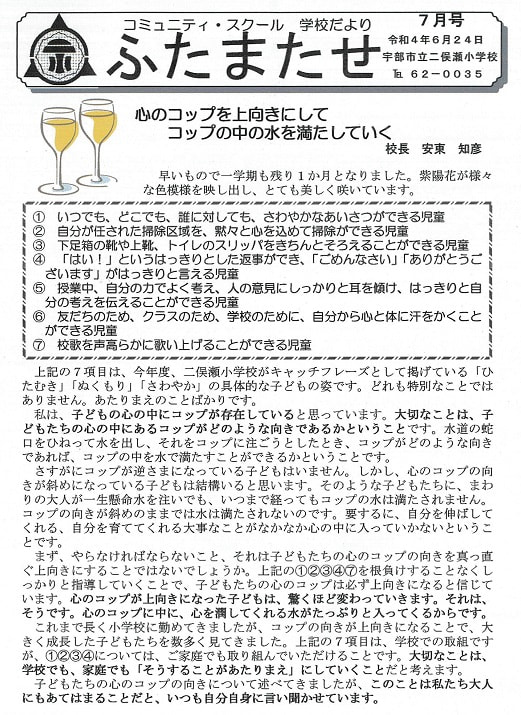 コミュニティ・スクール 学校だより
7月号
ふたまたせ
令和4年6月24日
宇部市立二俣瀬小学校
℡ 62-0035
心のコップを上向きにして
コップの中の水を満たしていく
校長 安東 知彦
早いもので一学期も残り1か月となりました。紫陽花が様々
な色模様を映し出し、とても美しく咲いています。
① いつでも、どこでも、誰に対しても、さわやかなあいさつができる児童
② 自分が任された掃除区域を、黙々と心を込めて掃除ができる児童
③ 下足箱の靴や上靴、トイレのスリッパをきちんとそろえることができる児童
④ 「はい！」というはっきりとした返事ができ、「ごめんなさい」「ありがとうご
ざいます」がはっきりと言える児童
⑤ 授業中、自分の力でよく考え、人の意見にしっかりと耳を傾け、はっきりと自
分の考えを伝えることができる児童
⑥ 友だちのため、クラスのため、学校のために、自分から心と体に汗をかくこと
ができる児童
⑦ 校歌を声高らかに歌い上げることができる児童
上記の7項目は、今年度、二俣瀬小学校がキャッチフレーズとして掲げている「ひ
たむき」「ぬくもり」「さわやか」の具体的な子どもの姿です。どれも特別なことでは
ありません。あたりまえのことばかりです。
私は、子どもの心の中にコップが存在していると思っています。大切なことは、子
どもたちの心の中にあるコップがどのような向きであるかということです。水道の蛇
口をひねって水を出し、それをコップに注ごうとしたとき、コップがどのような向き
であれば、コップの中を水で満たすことができるかということです。
さすがにコップが逆さまになっている子どもはいません。しかし、心のコップの向
きが斜めになっている子どもは結構いると思います。そのような子どもたちに、まわ
りの大人が一生懸命水を注いでも、いつまで経ってもコップの水は満たされません。
コップの向きが斜めのままでは水は満たされないのです。要するに、自分を伸ばして
くれる、自分を育ててくれる大事なことがなかなか心の中に入っていかないというこ
とです。
まず、やらなければならないこと、それは子どもたちの心のコップの向きを真っ直
ぐ上向きにすることではないでしょうか。上記の①②③④⑦を根負けすることなくし
っかりと指導していくことで、子どもたちの心のコップは必ず上向きになると信じて
います。心のコップが上向きになった子どもは、驚くほど変わっていきます。それは、
そうです。心のコップに中に、心を潤してくれる水がたっぷりと入ってくるからです。
これまで長く小学校に勤めてきましたが、コップの向きが上向きになることで、大
きく成長した子どもたちを数多く見てきました。上記の7項目は、学校での取組です
が、①②③④については、ご家庭でも取り組んでいただけることです。大切なことは、
学校でも、家庭でも「そうすることがあたりまえ」にしていくことだと考えます。
子どもたちの心のコップの向きについて述べてきましたが、このことは私たち大人
にもあてはまることだと、いつも自分自身に言い聞かせています。